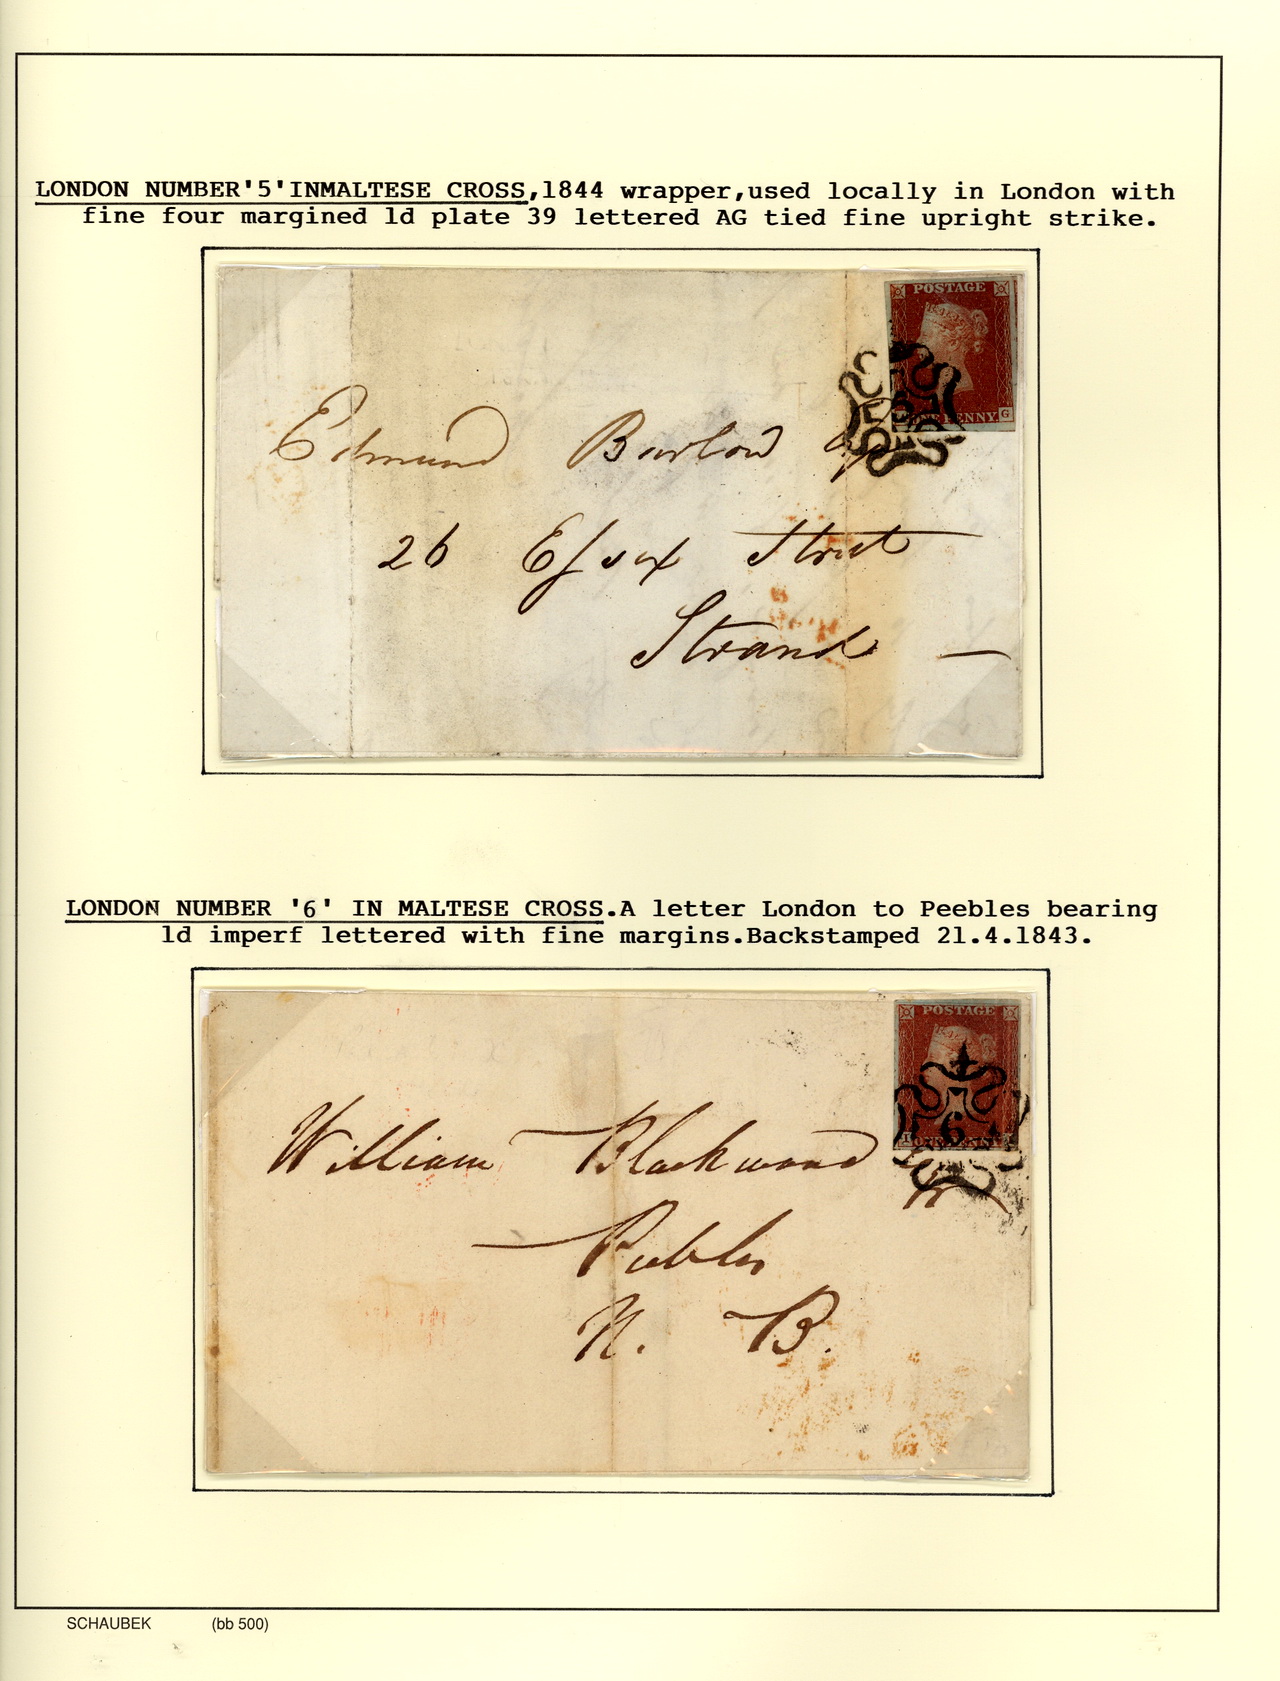 LONDON NUMBER'5'INMALTESE CROSS,1844 wrapper,used locally in London with
fine four margined 1d plate 39 lettered AG tied fine upright strike.
POSTAGE
ONE PENNY.
G
Edmund Barlow Esq
26 Essex Street
Strand
LONDON NUMBER '6' IN MALTESE CROSS.A letter London to Peebles bearing
1d imperf lettered with fine margins.Backstamped 21.4.1843.
POSTAGE
6
William Blackwood
Peebles
N. B.
SCHAUBEK (bb 500)